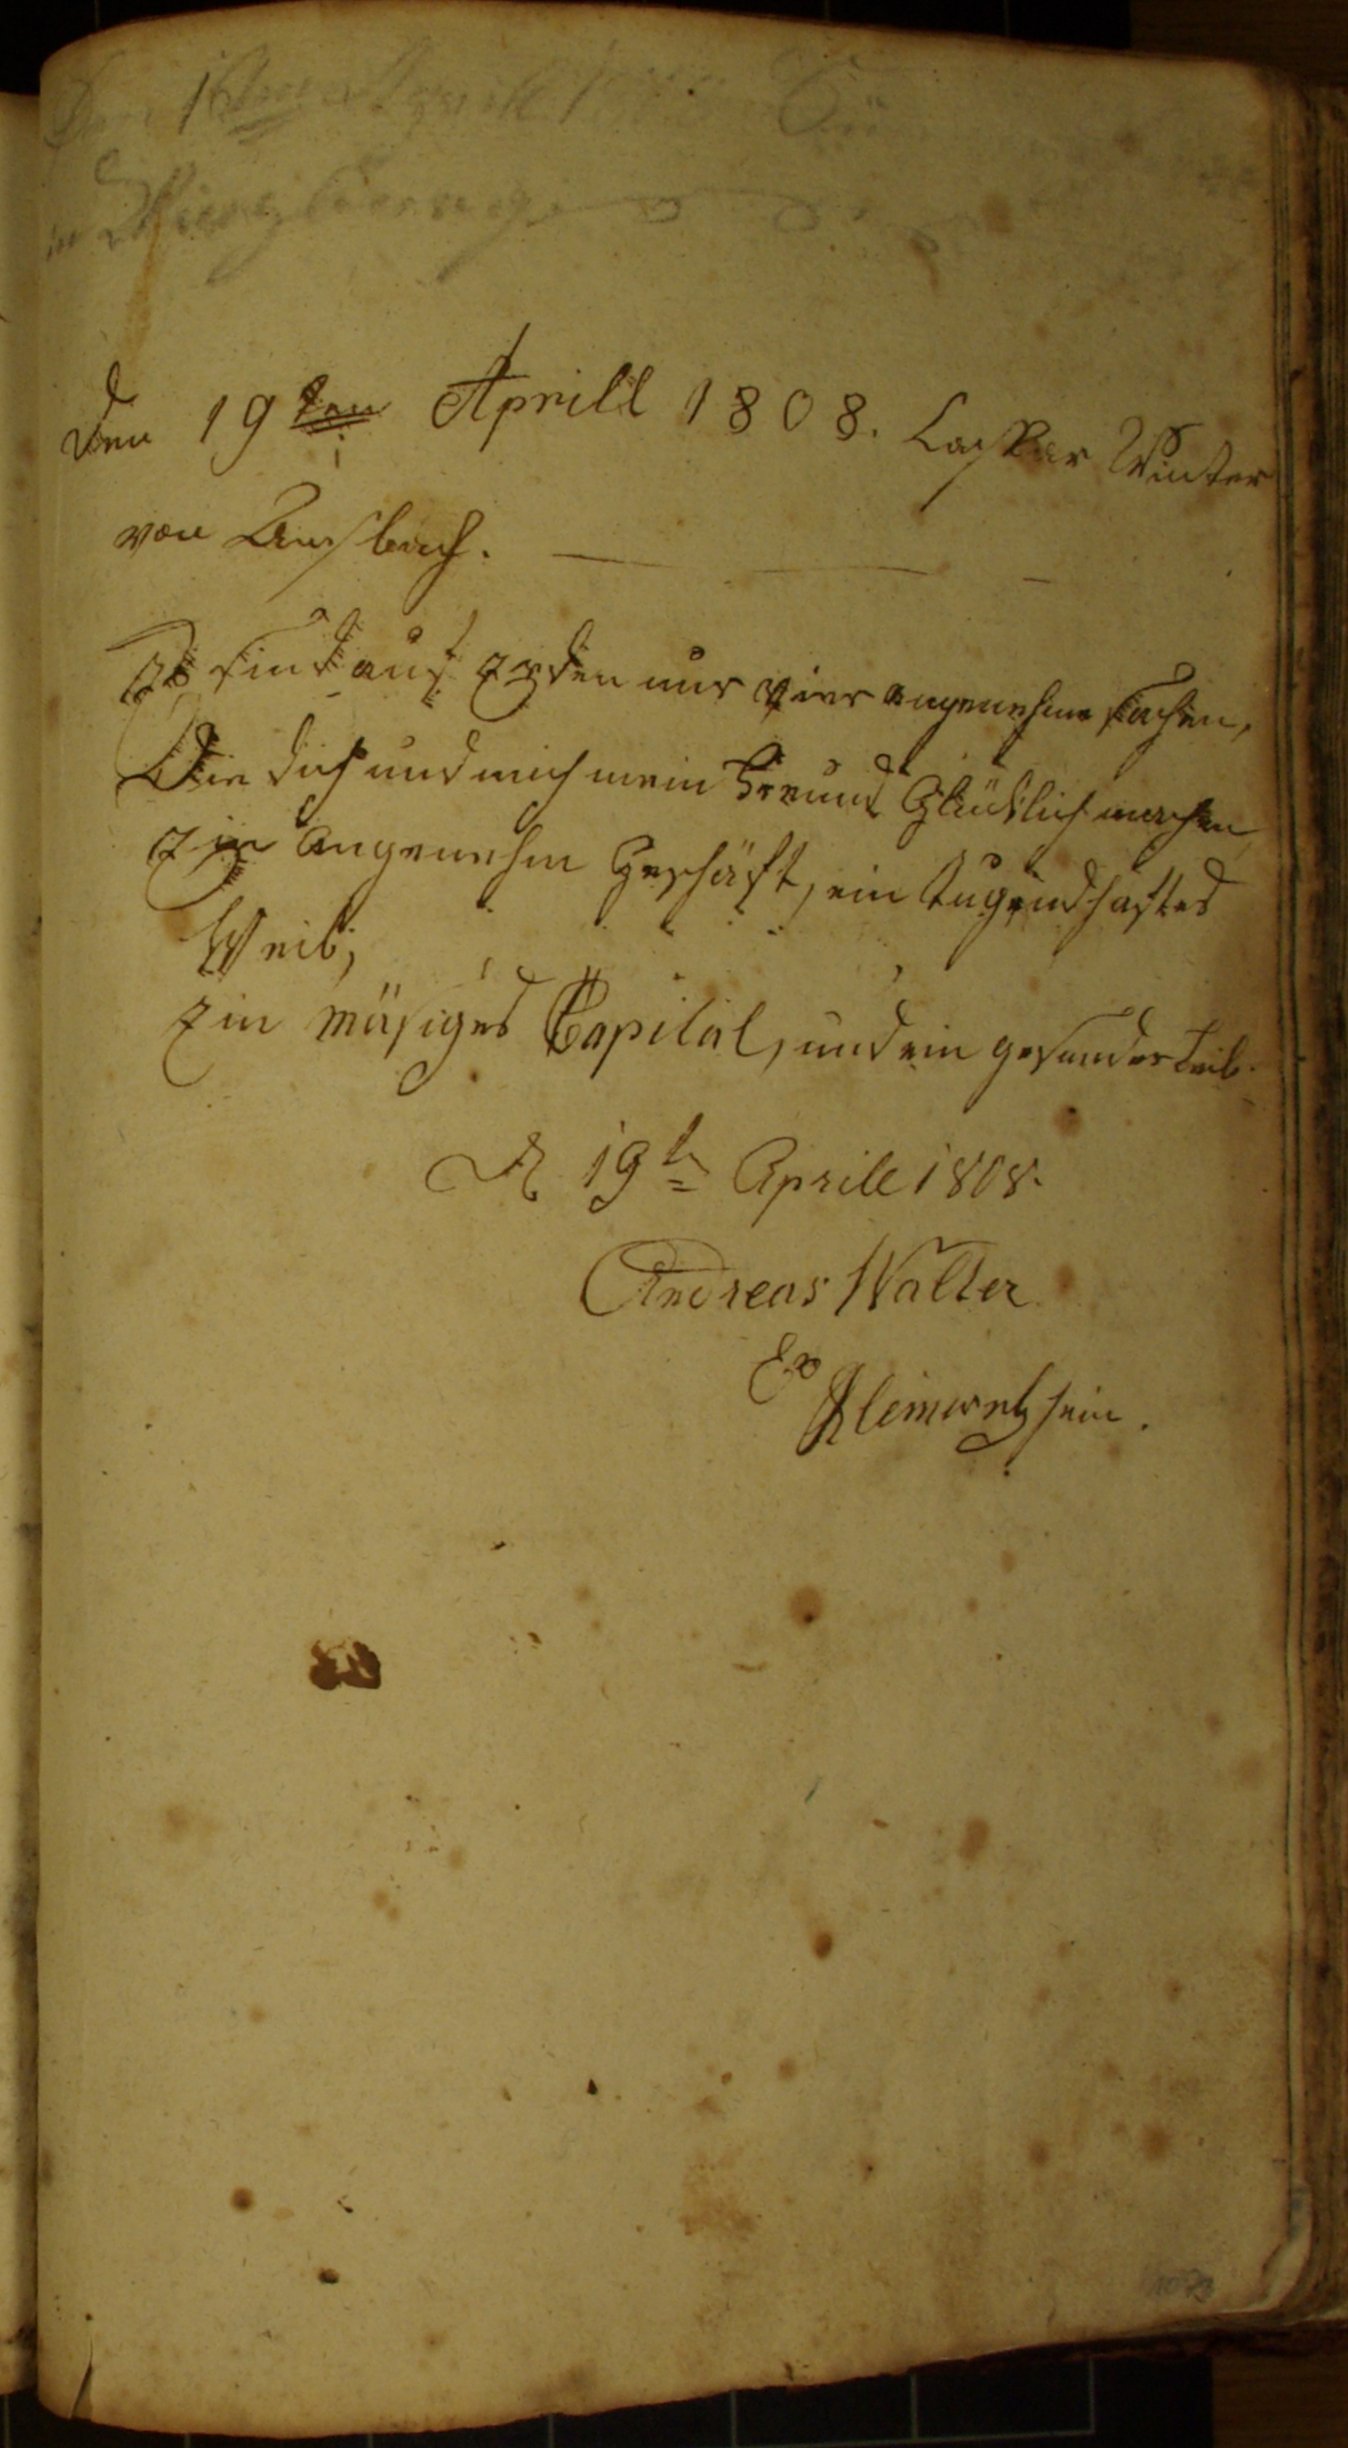 Den
in
den 19ten Aprill 1808. Caspar Winter
von Ansbach.
Es sind auf Erden nur vier angenehme sachen,
Die dich und mich mein Freund Glücklich machen
Ein angenehm Geschäft, ein tugendhaftes
Weib,
Ein mäsiges Capital, und ein gesunder Leib.
d 19t Aprill 1808.
Andreas Walter
Ex
Kleinwetzheim.